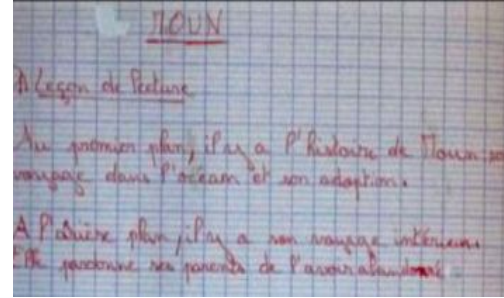 MOUN
A Leçon de lecture
Au premier plan, il y a l'histoire de Moun, son
voyage dans l'océan et son adoption.
A l'arière plan, il y a son voyage intérieur.
Elle pardonne ses parents de l'avoir abandonné.